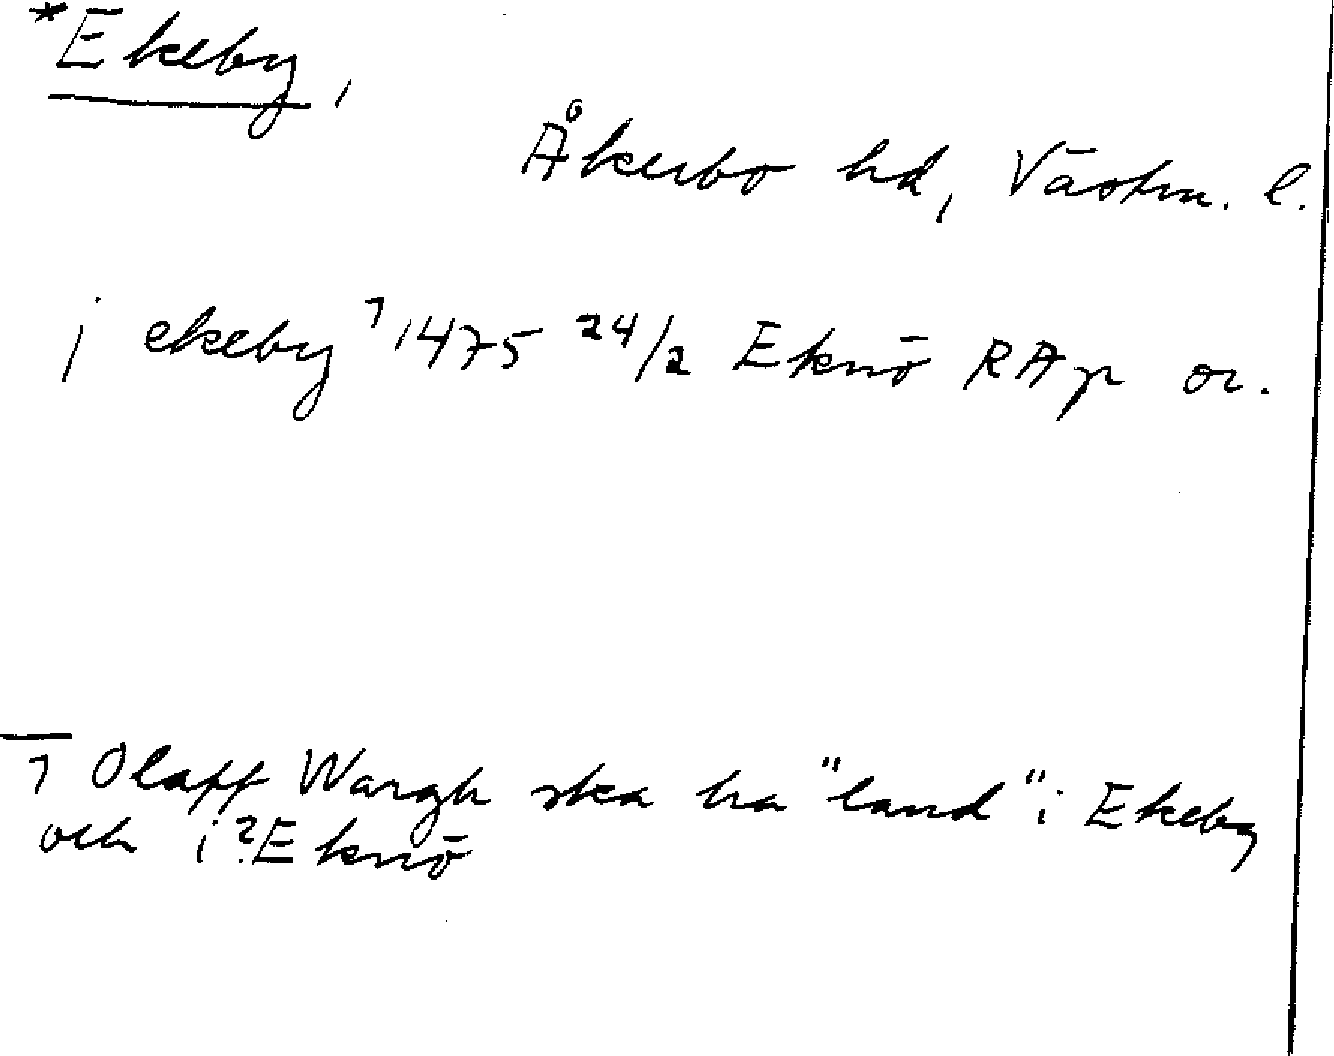 *Ekeby,
Åkerbo hd, Västm. l.
j ekeby ¹ 1475 24/2 Eknö RAp or.
1 Olaff Wargh ska ha "land" i Ekeby
och i ? Eknö